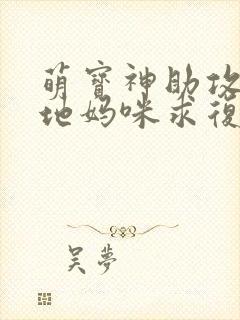 萌寶神助攻
地媽咪求復
吴夢